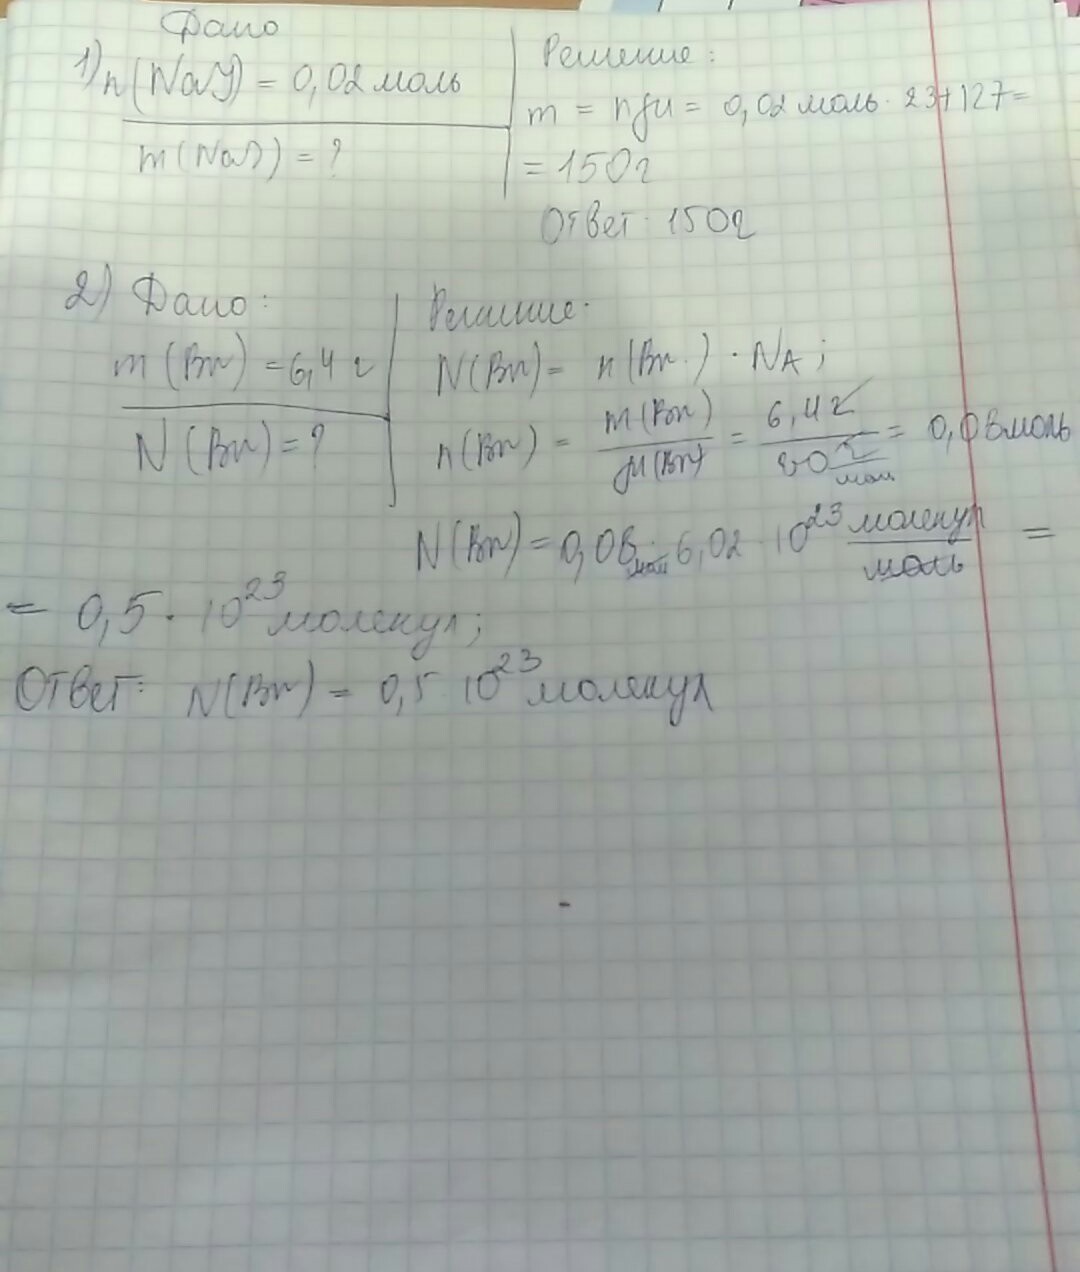 Дано
1) n(NaJ) = 0,02 моль
m(NaJ) = ?
Решение:
m = nμ = 0,02 моль · 23+127=
= 150г
Ответ: 150г
2) Дано:
m(Br) = 6,4 г
N(Br) = ?
Решение:
N(Br) = n(Br) · NA;
n(Br) = m(Br)/μ(Br) = 6,4г/80 г/моль = 0,08моль
N(Br) = 0,08 моль · 6,02 · 10²³ молекул/моль =
= 0,5 · 10²³ молекул;
Ответ: N(Br) = 0,5 · 10²³ молекул